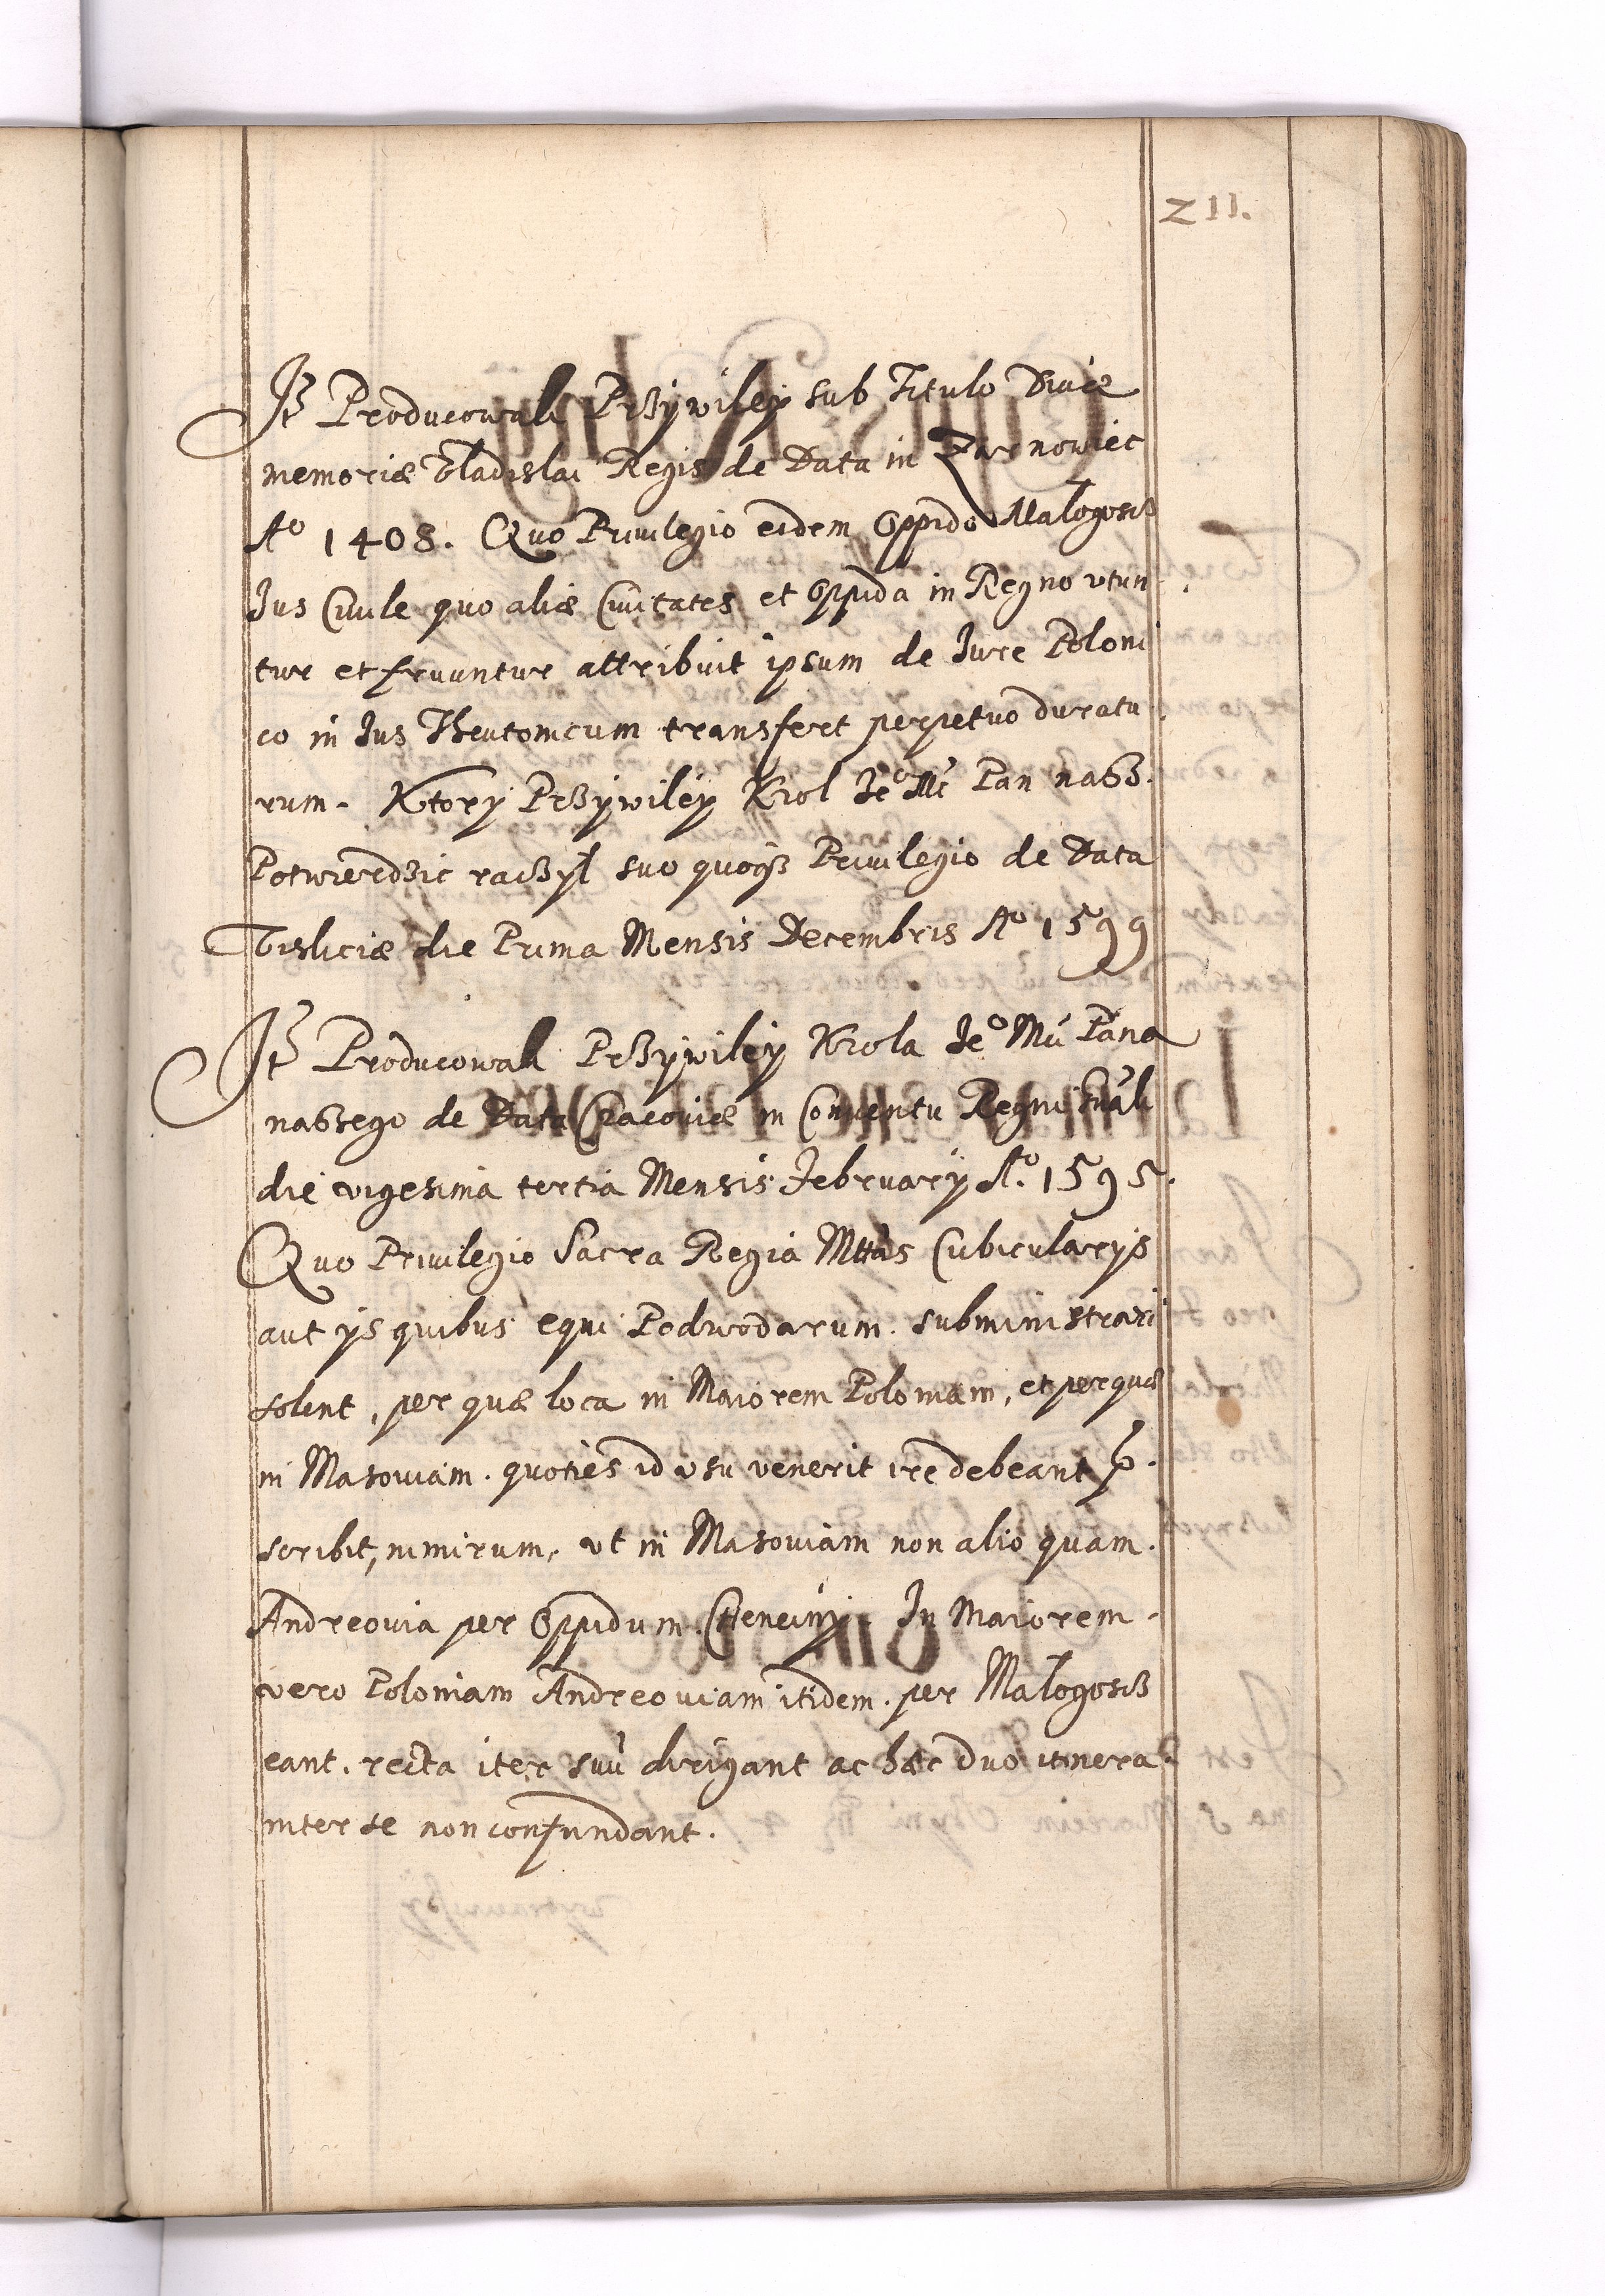 211.
Jt Producowali Przÿwileÿ sub Titulo Diuæ
memoriæ Vladislai Regis de Data in Zarnowiec
Aº 1408. Quo Priuilegio eidem Oppido Małogoscz
Jus Ciuile quo aliæ Ciuitates et Oppida in Regno vtun
tur et fruuntur attribuit ipsum de Jure Poloni
co in Jus Theutonicum transfert perpetuo duratu
rum. Ktorÿ Przÿwileÿ Krol Jeº Mć Pan nasz.
Potwierdzic raczÿł suo quoqz Priuilegio de Data
Visliciæ die Prima Mensis Decembris Aº 1599
Jt Producowali Przÿwileÿ Krola Jeº Mći Pana
naszego de Data Cracouiæ in Conuentu Regni
die vigesima tertia Mensis Februarÿ Aº. 1595.
Quo Priuilegio Sacra Regia Mttas Cubicularÿs
aut ÿs quibus equi Podwodarum. subministrari
solent, per quæ loca in Maiorem Poloniam, et per quæ
in Masouiam. quoties id vsu venerit ire debeant
scribit, nimirum, vt in Masouiam non alio quam.
Andreouia per Oppidum. Chencinÿ. In Maiorem.
vero Poloniam Andreouiam itidem. per Małogoscz
eant. recta iter suũ dirigant ac hæc duo itinera.
inter se non confundant.